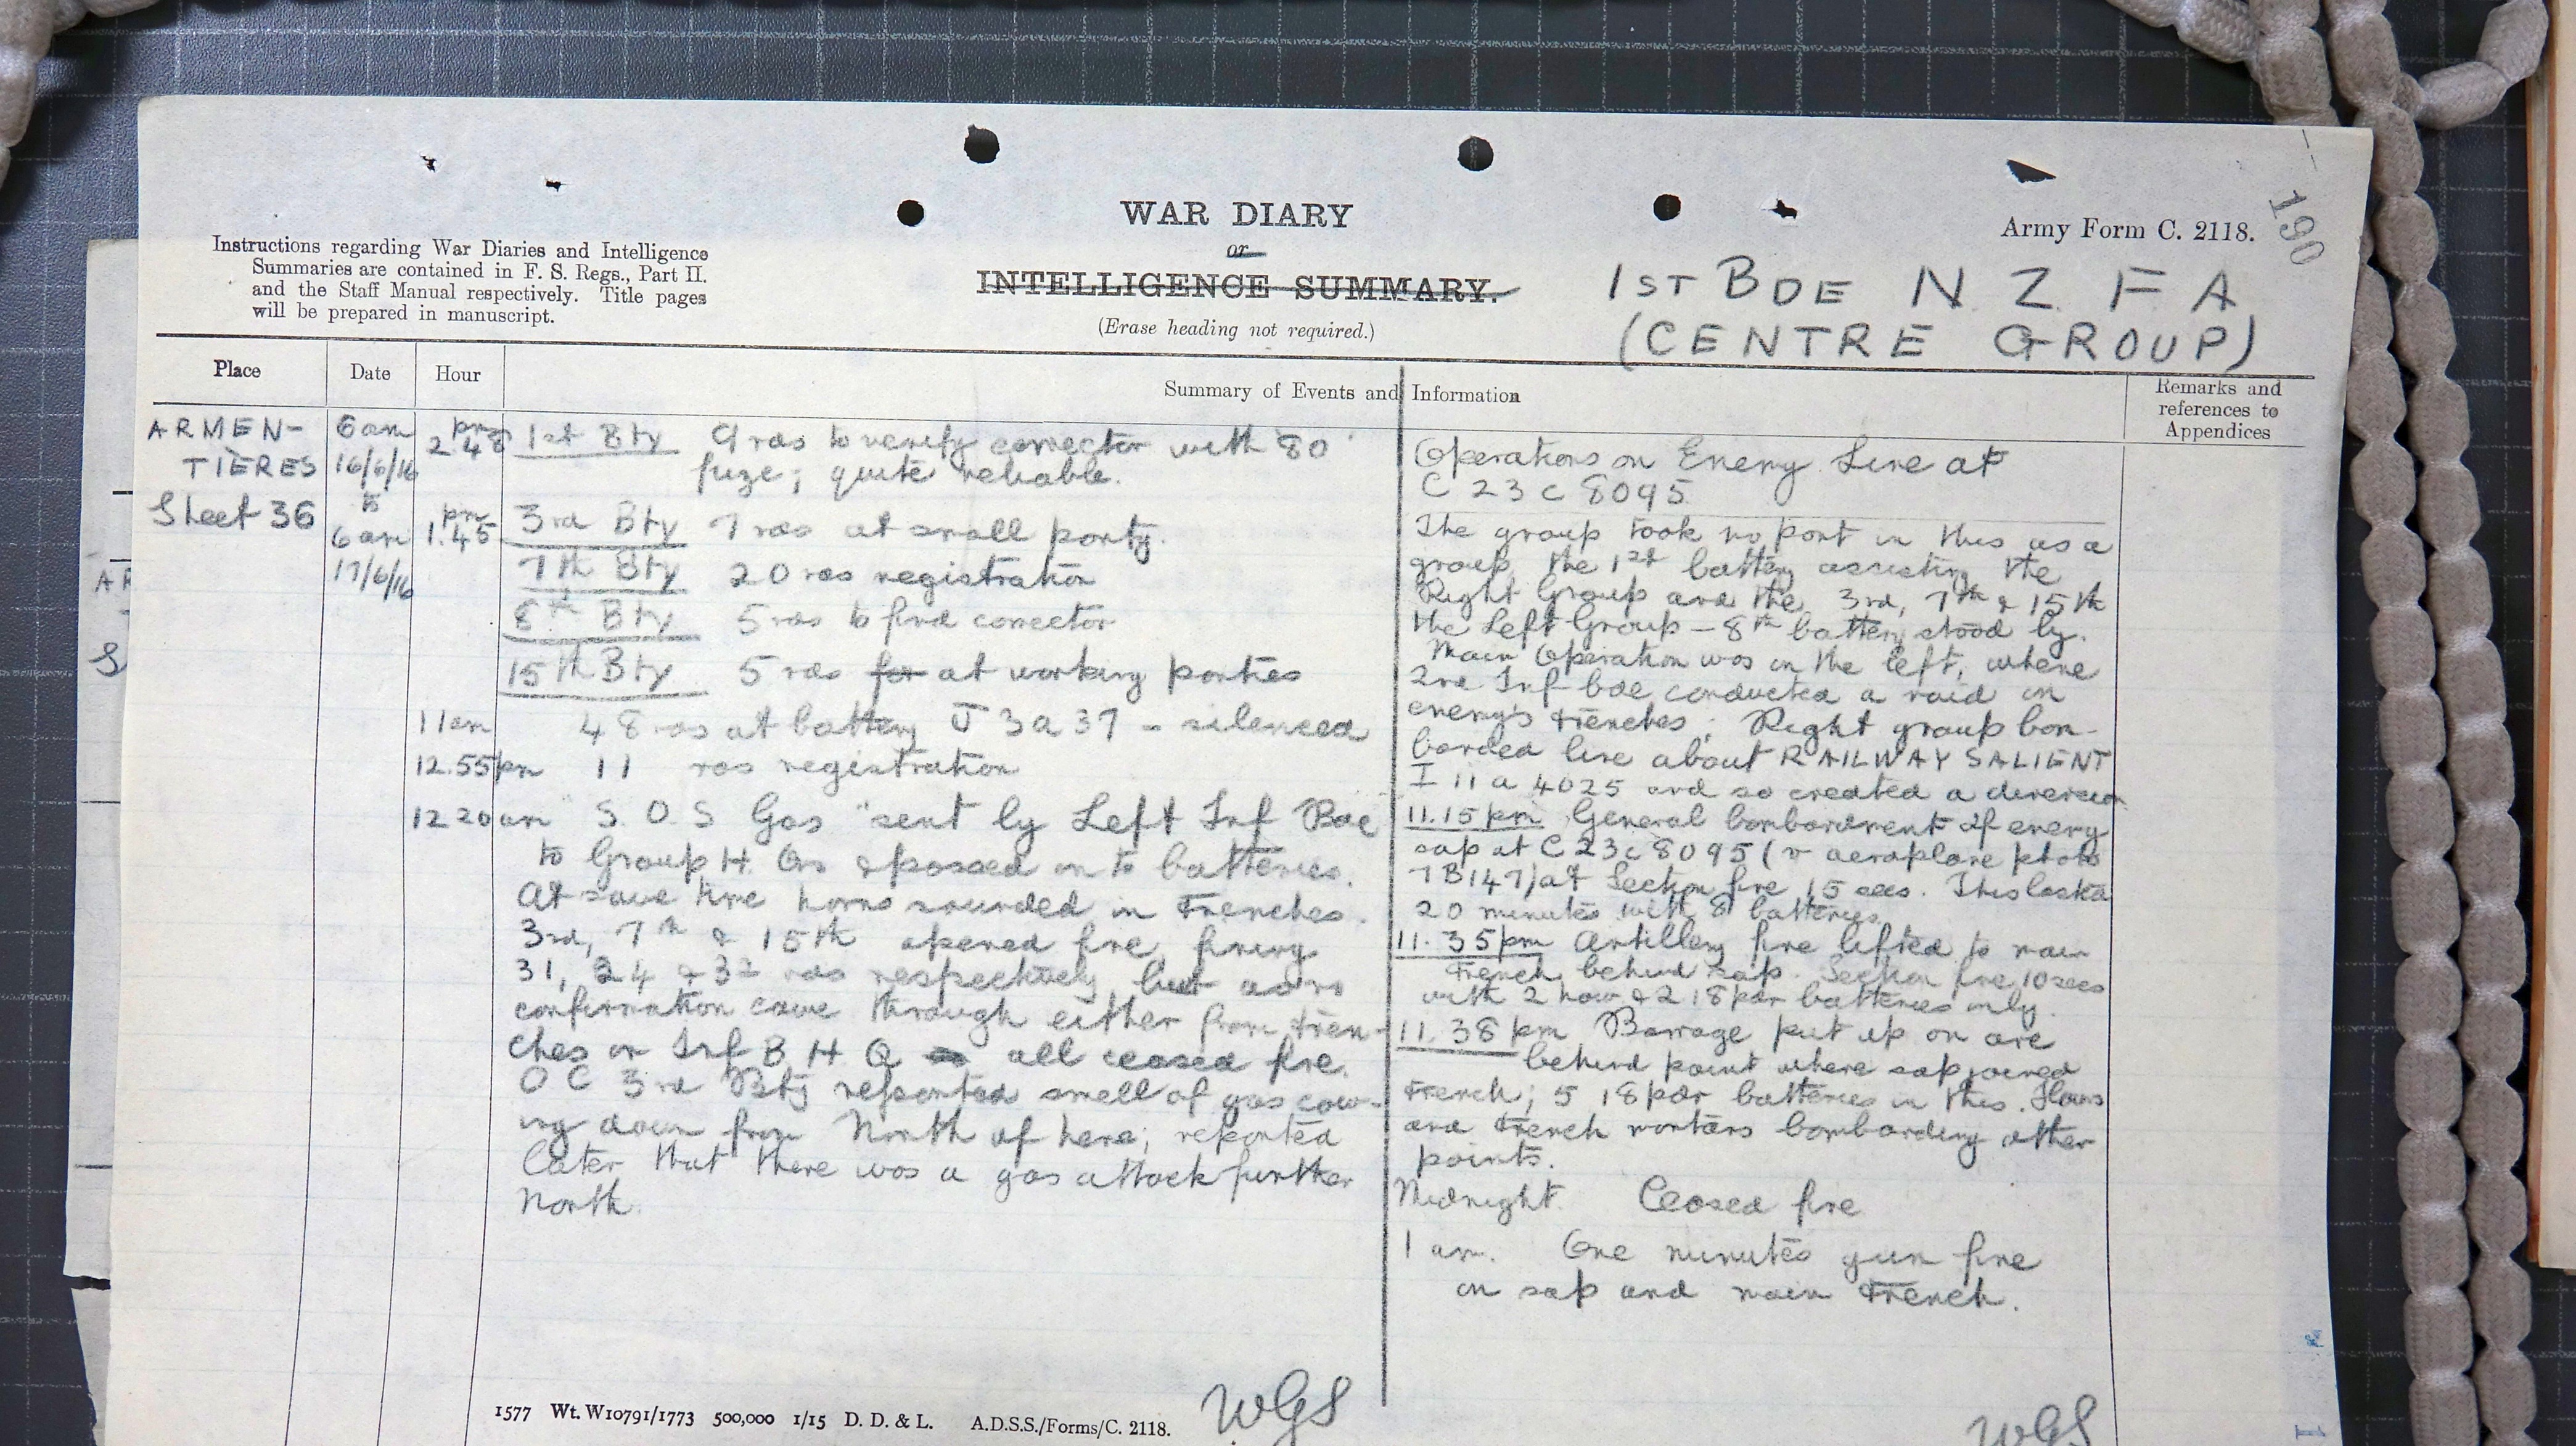 190
WAR DIARY
or
INTELLIGENCE SUMMARY.
(Erase heading not required.)
Army Form C. 2118.
Instructions regarding War Diaries and Intelligence
Summaries are contained in F. S. Regs., Part II.
and the Staff Manual respectively. Title pages
will be prepared in manuscript.
1ST BDE N. Z. F A
(CENTRE GROUP)
Place Date Hour Summary of Events and Information Remarks and
references to
Appendices
ARMEN-
TIÈRES
Sheet 36
6 am
16/6/16
to
6 am
17/6/16
pm
2.48 1st Bty 9 rds to verify corrector with 80
fuze; quite reliable.
pm
1.45 3rd Bty 7 rds at small party.
7th Bty 20 rds registration
8th Bty 5 rds to find corrector
15th Bty 5 rds for at working parties
11 am 48 rds at battery J 3 a 37 - silenced
12.55 pm 11 rds registration
12 20 am "S. O. S Gas" sent by Left Inf Bde
to Group H. Qrs & passed on to batteries.
At same time horns sounded in trenches.
3rd, 7th & 15th opened fire, firing
31, 24 & 32 rds respectively, but as no
confirmation came through either from tren-
ches or Inf B H Q all ceased fire.
O C 3rd Bty reported smell of gas com-
ing down from North of here; reported
later that there was a gas attack further
North.
Operations on Enemy Line at
C 23 c 8095
The group took no part in this as a
group, the 1st battery assisting the
Right Group and the 3rd, 7th & 15th
the Left Group - 8th battery stood by.
Main Operation was on the left, where
2nd Inf bde conducted a raid on
enemy's trenches; Right group bom-
barded line about RAILWAY SALIENT
I 11 a 4025 and so created a diversion
11.15 pm General bombardment of enemy
sap at C 23 c 8095 (v aeroplane photo
7 B 147) at Section fire 15 secs. This lasted
20 minutes with 8 batteries.
11.35 pm Artillery fire lifted to main
trench behind sap. Section fire 10 secs
with 2 how & 2 18 pdr batteries only.
11.38 pm Barrage put up on arc
behind point where sap joined
trench; 5 18 pdr batteries in this. Hows
and trench mortars bombarding other
points.
Midnight. Ceased fire
1 am. One minutes gun fire
on sap and main trench.
WGS
WGS
1577 Wt. W10791/1773 500,000 1/15 D. D. & L. A.D.S.S./Forms/C. 2118.
AR
S